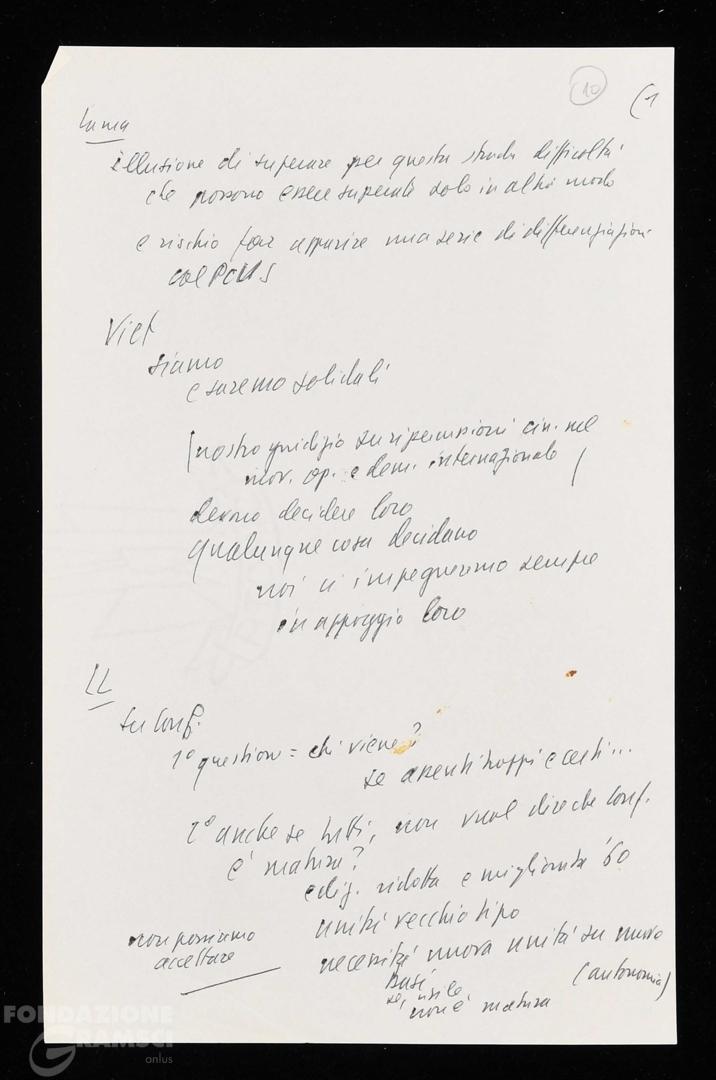 10
(1
Luma
illusione di superare per questa strada difficoltà
che possono essere superate solo in altro modo
e rischio far apparire una serie di differenziazioni
col PCUS
Viet
siamo
e saremo solidali
(nostro giudizio su ripercussioni cin. nel
mov. op. e dem. internazionale )
devono decidere loro
qualunque cosa decidano
noi ci impegneremo sempre
in appoggio loro
LL
su conf.
1° question = chi viene?
se assenti troppi e certi...
2° anche se tutti, non vuol dire che conf.
è matura?
ediz. ridotta e migliorata '60
unità vecchio tipo
non possiamo
accettare
necessità nuova unità su nuove
basi
(autonomia)
non è matura
FONDAZIONE
GRAMSCI
onlus